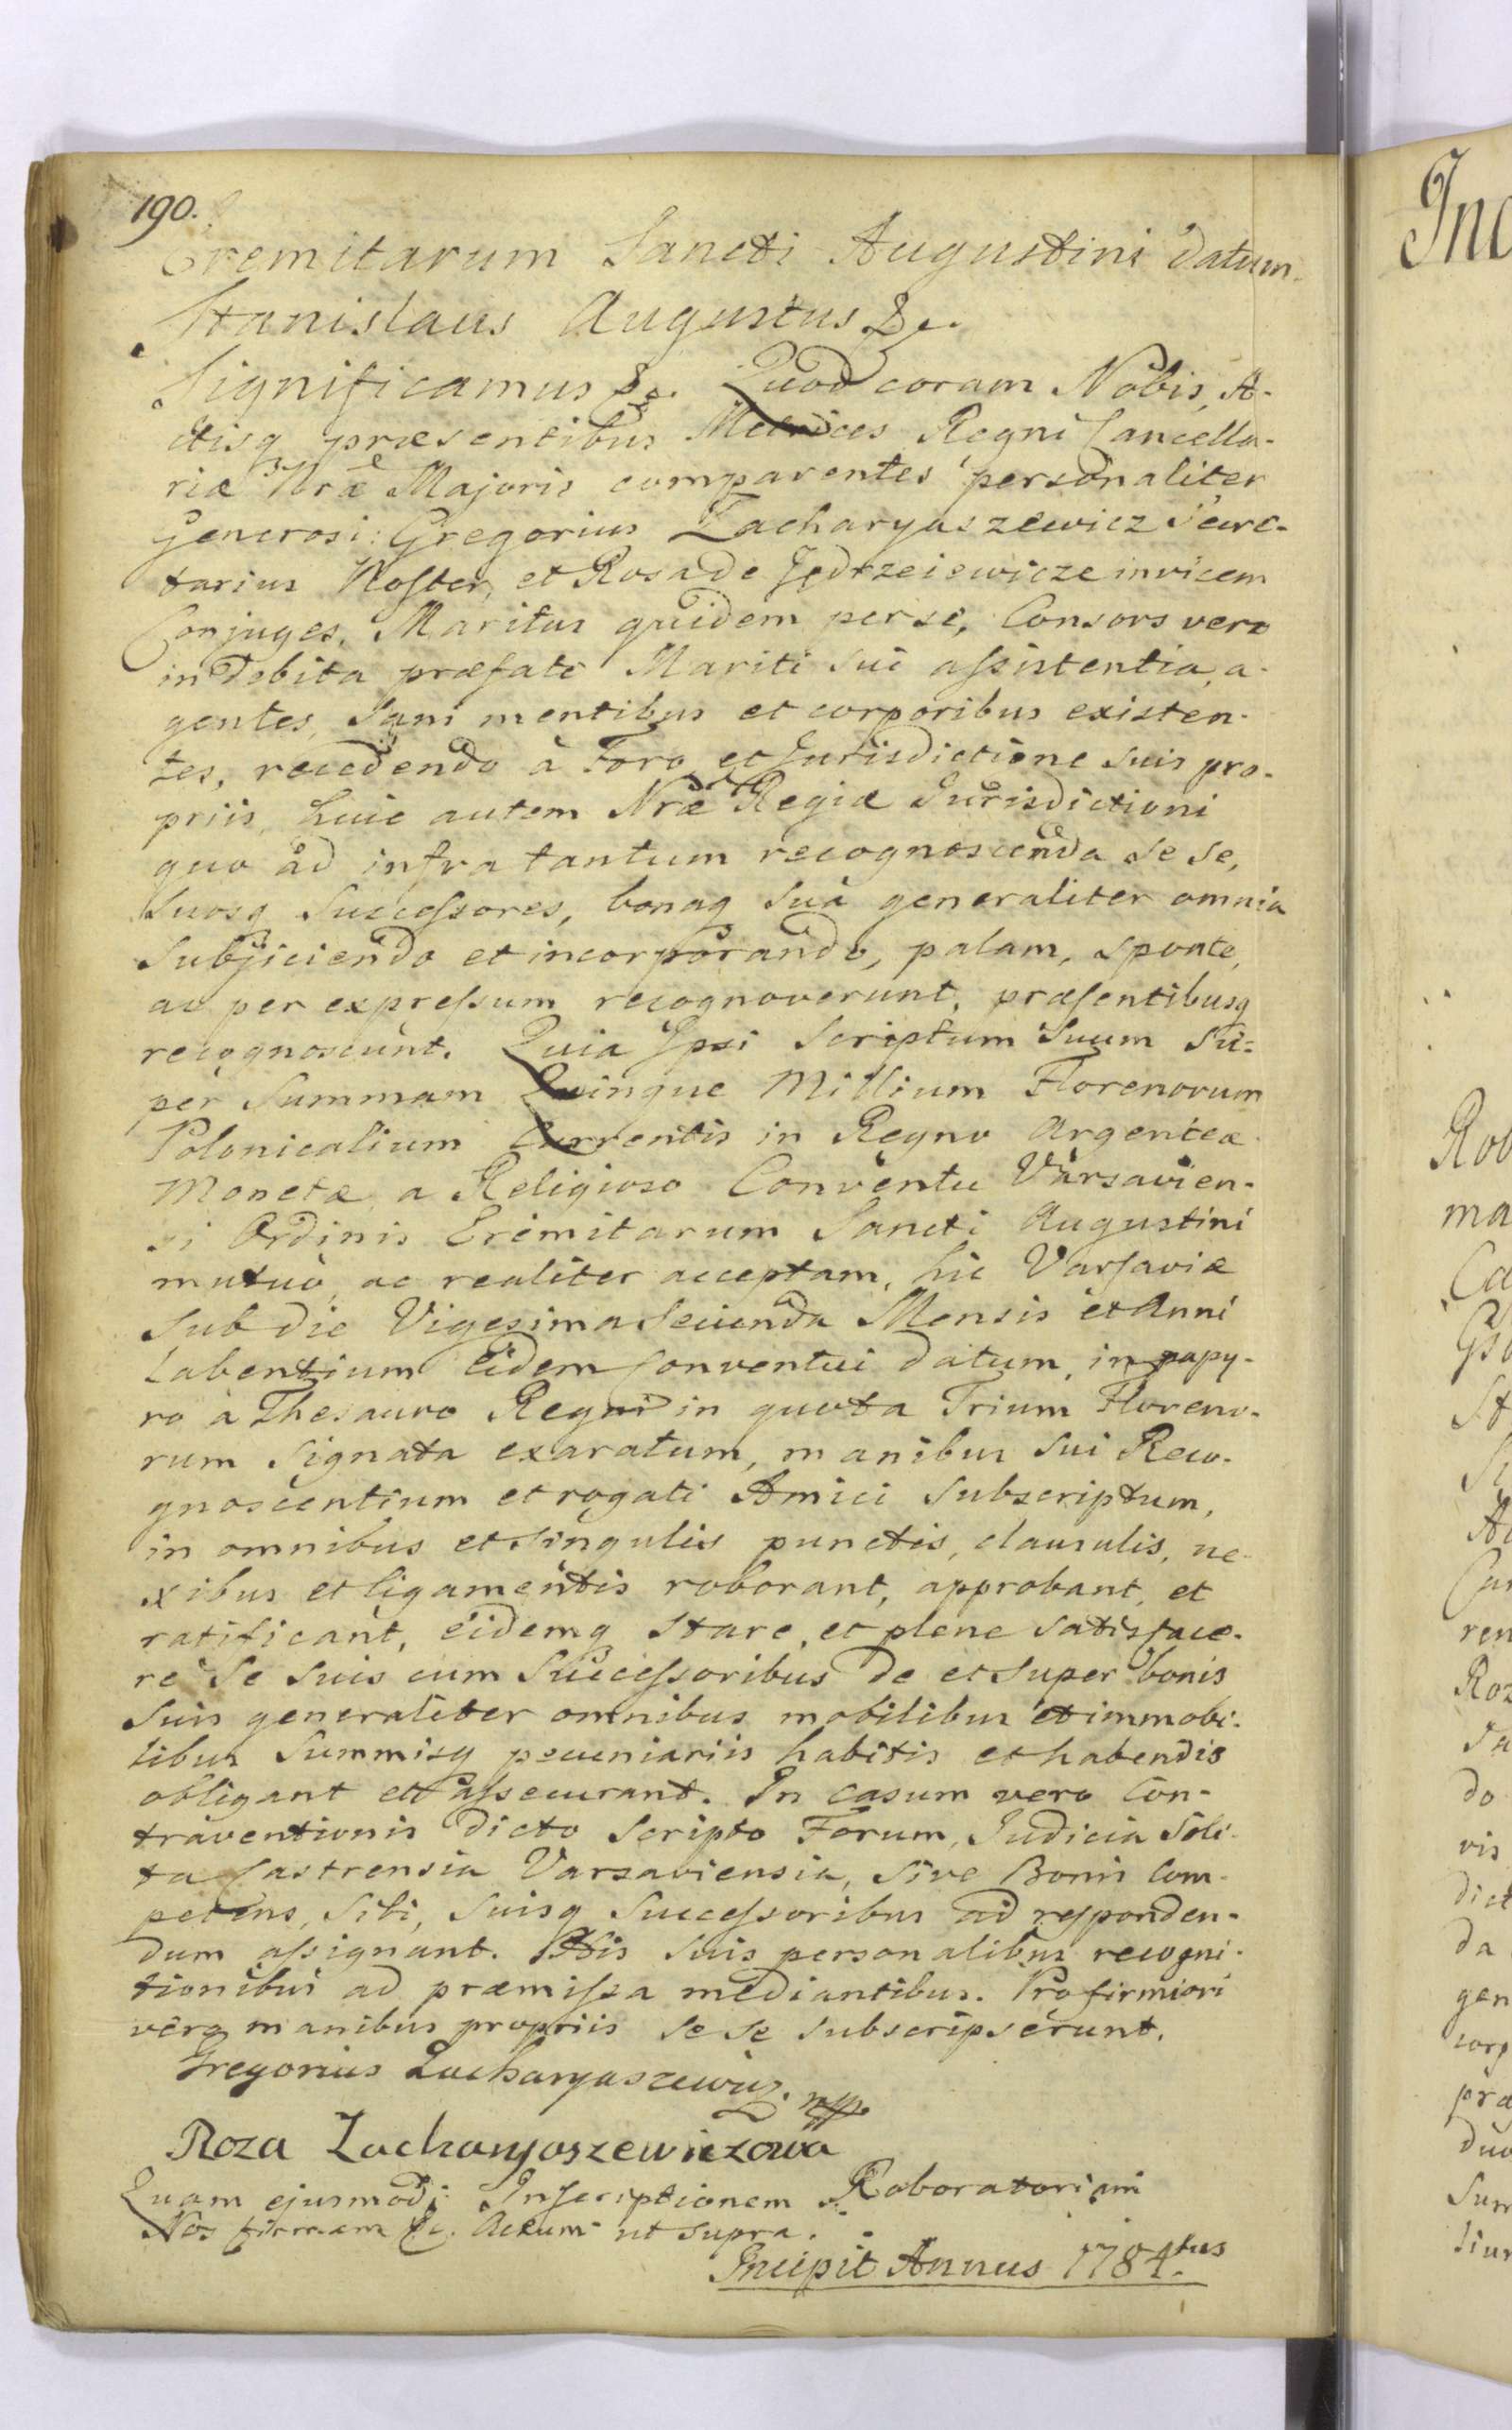 190.
Eremitarum Sancti Augustini datum.
Stanislaus Augustus &c.
Significamus &c. Quod coram Nobis, A-
ctisq præsentibus Metrices Regni Cancella-
riæ Nræ Majoris comparentes personaliter
Generosi: Gregorius Zacharyaszewicz Secre-
tarius Noster, et Rosa de Jędrzeiewicze invicem
Conjuges, Maritus quidem per se, Consors vero
in debita præfati Mariti sui assistentia, a-
gentes, sani mentibus et corporibus existen-
tes, recedendo à Foro et Jurisdictione suis pro-
priis, huic autem Nræ Regiæ Jurisdictioni
quo ad infra tantum recognoscenda se se,
suosq Successores, bonaq sua generaliter omnia
subjiciendo et incorporando, palam, sponte,
ac per expressum recognoverunt, præsentibusq
recognoscunt. Quia Ipsi Scriptum Suum Su-
per Summam Quinque Millium Florenorum
Polonicalium Currentis in Regno Argenteæ
Monetæ a Religioso Conventu Varsavien-
si Ordinis Eremitarum Sancti Augustini
mutuò, ac realiter acceptam, hic Varsaviæ
sub die Vigesima Secunda Mensis et Anni
Labentium eidem Conventui datum, in papy-
ro à Thesauro Regni in quota Trium Floreno-
rum signata exaratum, manibus sui Reco-
gnoscentium et rogati Amici subscriptum,
in omnibus et singulis punctis, clausulis, ne-
xibus et ligamentis roborant, approbant, et
ratificant, eidemq stare, et plene satisface-
re se suis cum Successoribus de et super bonis
suis generaliter omnibus mobilibus et immobi-
libus Summisq pecuniariis habitis et habendis
obligant et assecurant. In casum vero Con-
traventionis dicto Scripto Forum, Judicia Soli-
ta Castrensia Varsaviensia, sive Bonis Com-
petens, sibi, suisq Successoribus ad responden-
dum assignant. His suis personalibus recogni-
tionibus ad præmissa mediantibus. Pro firmiori
verq manibus propriis se se subscripserunt.
Gregorius Zacharyaszewicz. mpp
Roza Zacharyaszewiczowa
Quam ejusmodi Inscriptionem Roboratoriam
Nos firmam &c. Actum ut supra.
Incipit Annus 1784.tus